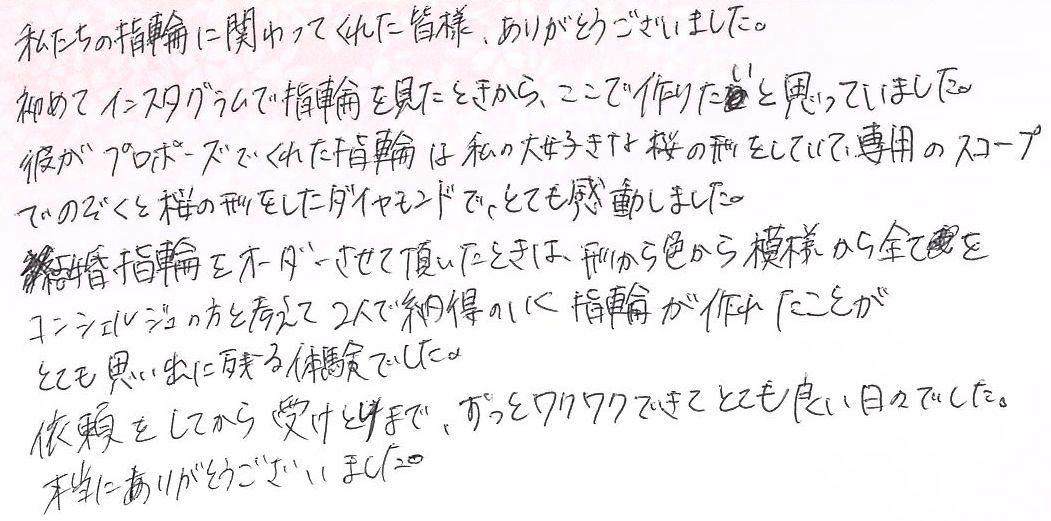 私たちの指輪に関わってくれた皆様、ありがとうございました。
初めてインスタグラムで指輪を見たときから、ここで作りたいと思っていました。
彼がプロポーズでくれた指輪は私の大好きな桜の形をしていて、専用のスコープ
でのぞくと桜の形をしたダイヤモンドで、とても感動しました。
結婚指輪をオーダーさせて頂いたときは、形から色から模様から全てを
コンシェルジュの方と考えて2人で納得のいく指輪が作れたことが
とても思い出に残る体験でした。
依頼をしてから受けとりまで、ずっとワクワクできてとても良い日々でした。
本当にありがとうございました。